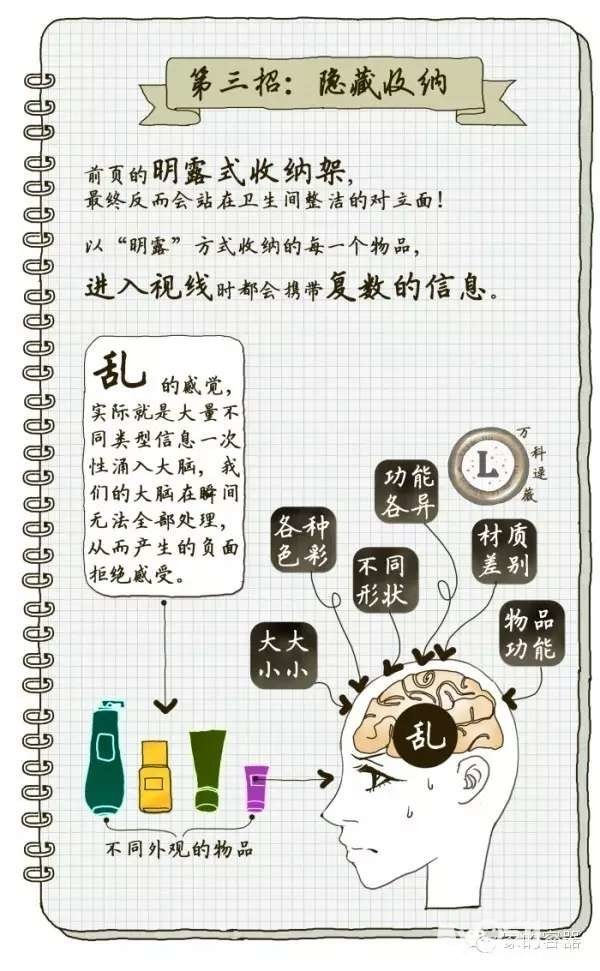 第三招：隐藏收纳
前页的明露式收纳架，
最终反而会站在卫生间整洁的对立面！
以“明露”方式收纳的每一个物品，
进入视线时都会携带复数的信息。
乱的感觉，
实际就是大量不
同类型信息一次
性涌入大脑，我
们的大脑在瞬间
无法全部处理，
从而产生的负面
拒绝感受。
L
万科逯薇
功能
各异
各种
色彩
不同
形状
材质
差别
大大
小小
物品
功能
乱
不同外观的物品